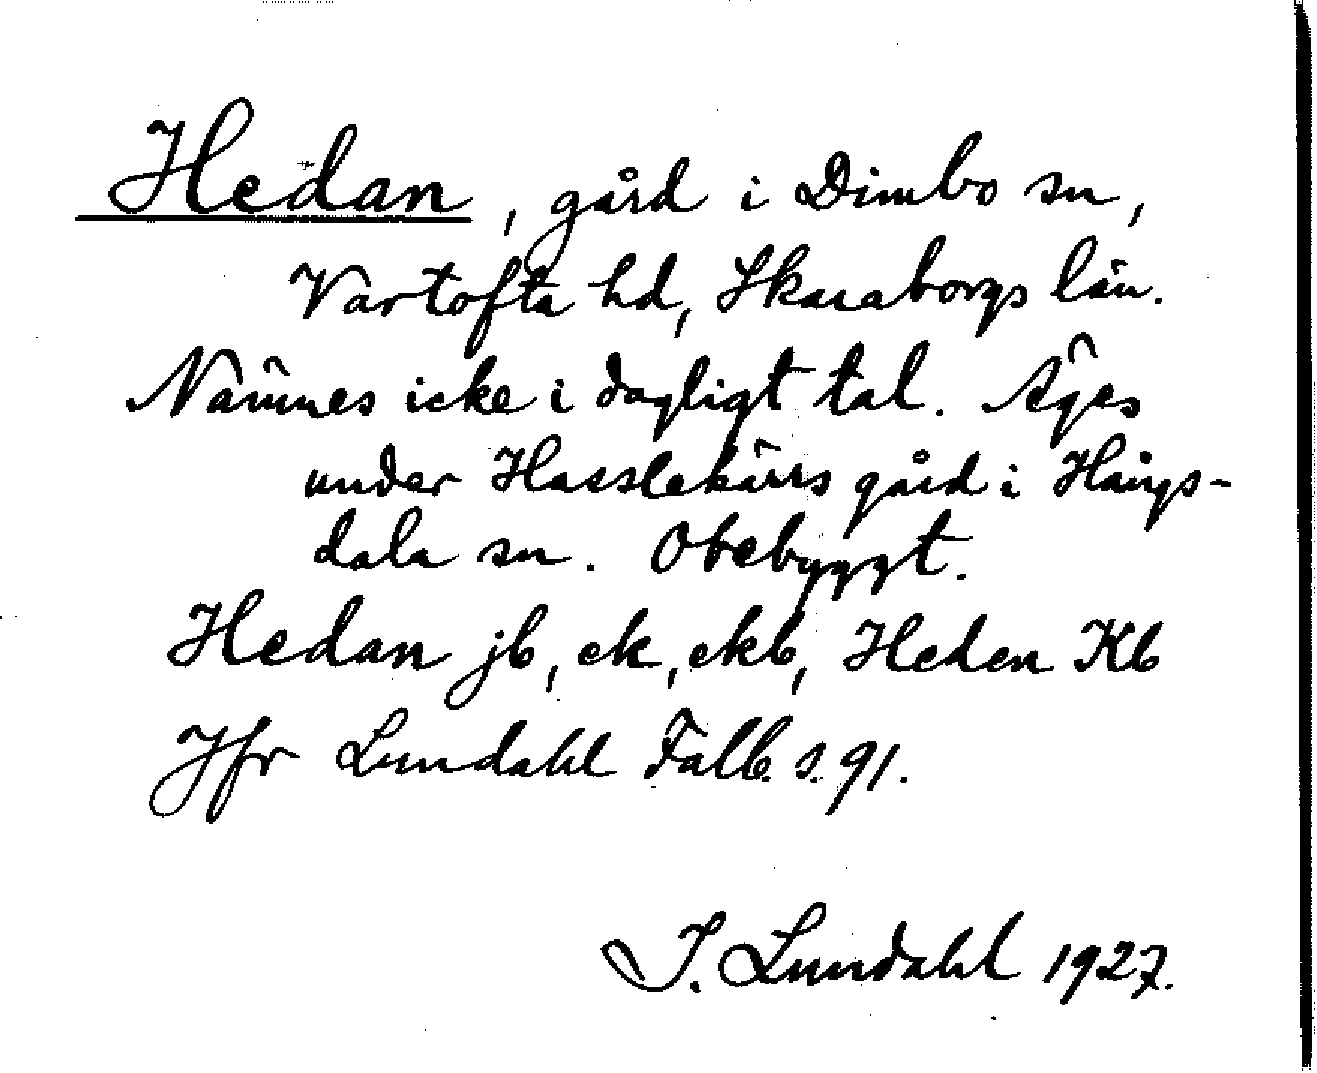 Hedan, gård i Dimbo sn,
Vartofta hd, Skaraborgs län.
Nämnes icke i dagligt tal. Äges
under Hasslekärrs gård i Hångs-
dala sn. Obebyggt.
Hedan jb, ek, ekb, Heden Kb
Jfr Lundahl Falb. s. 91.
I. Lundahl 1927.